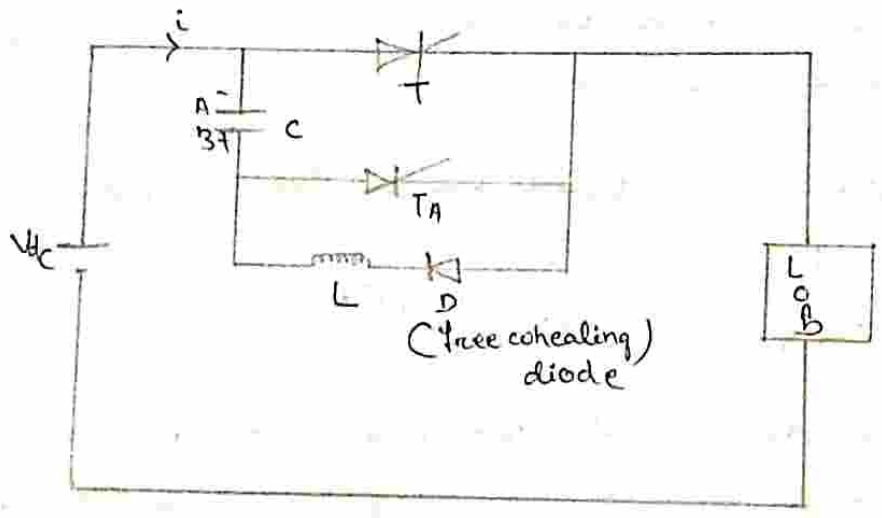 i
T
A -
B +
C
TA
Vdc
L
D
(free cohealing)
diode
L
O